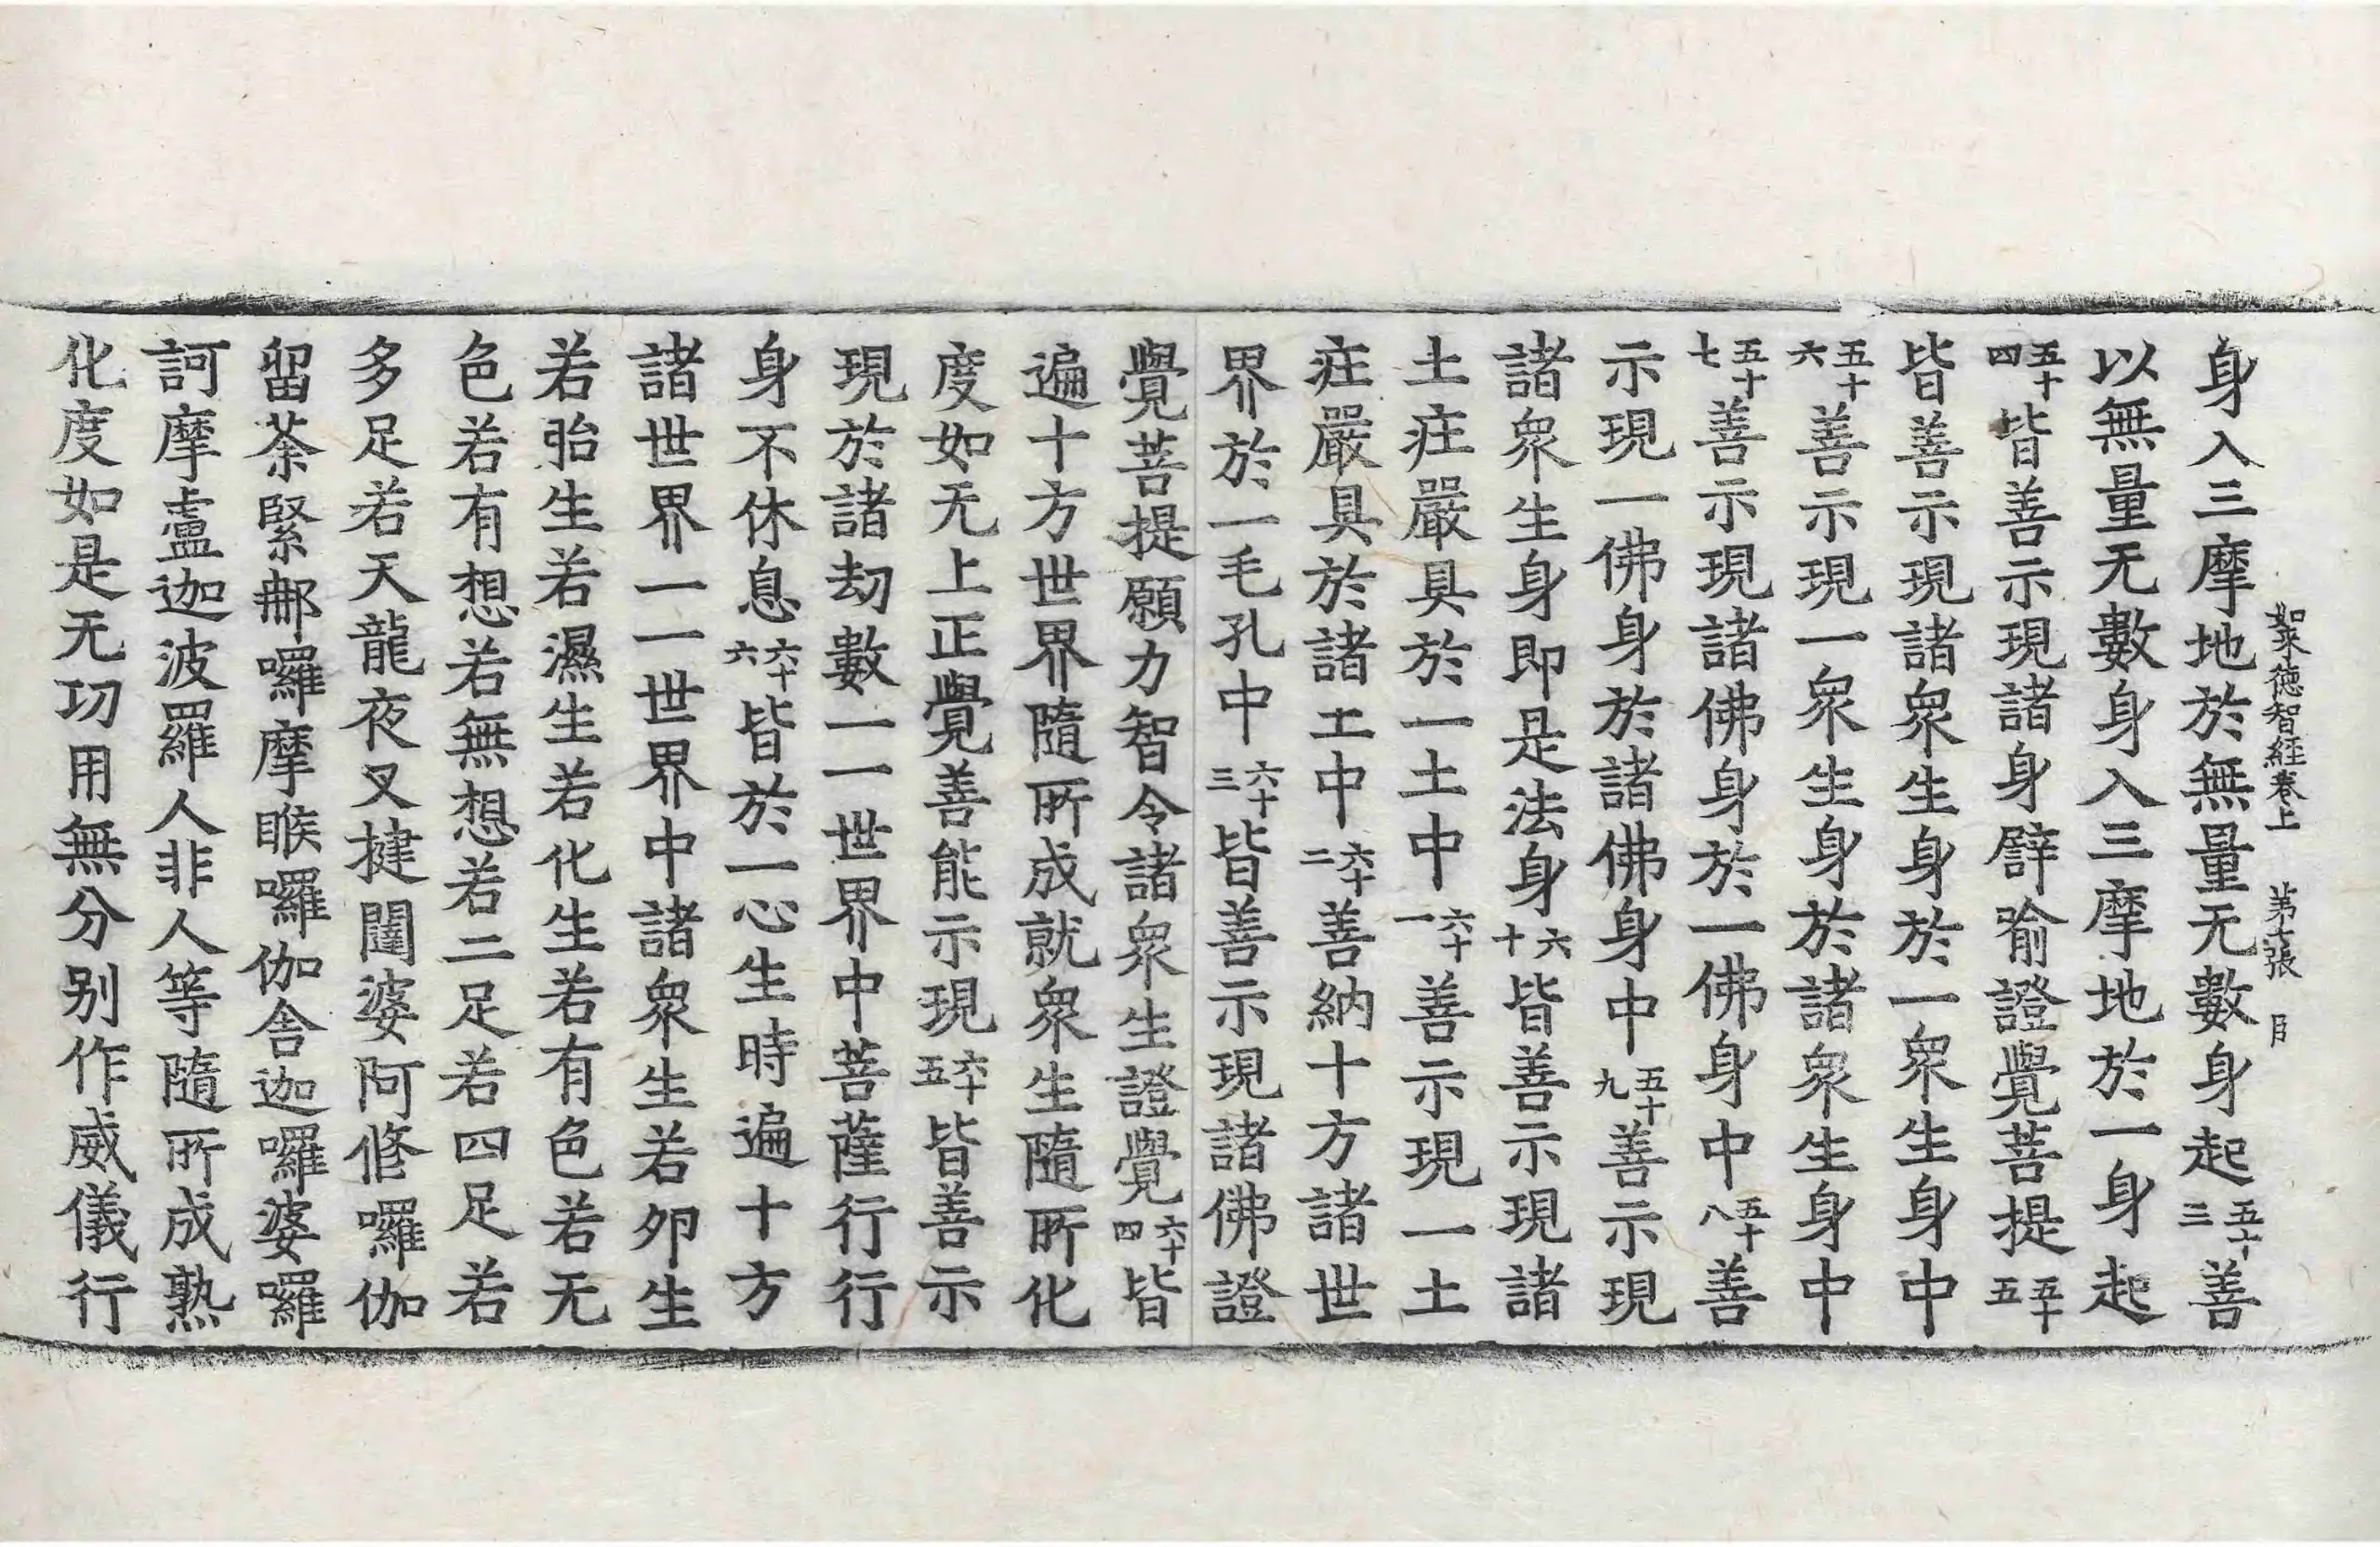 如來德智經卷上 第七張 目
身入三摩地於無量无數身起五十三善
以無量无數身入三摩地於一身起
五十四皆善示現諸身譬喻證覺菩提五十五
皆善示現諸衆生身於一衆生身中
五十六善示現一衆生身於諸衆生身中
五十七善示現諸佛身於一佛身中五十八善
示現一佛身於諸佛身中五十九善示現
諸衆生身即是法身六十皆善示現諸
土疘嚴具於一土中六十一善示現一土
疘嚴具於諸土中六十二善納十方諸世
界於一毛孔中六十三皆善示現諸佛證
覺菩提願力智令諸衆生證覺六十四皆
遍十方世界隨所成就衆生隨所化
度如无上正覺善能示現六十五皆善示
現於諸劫數一一世界中菩薩行行
身不休息六十六皆於一心生時遍十方
諸世界一一世界中諸衆生若卵生
若胎生若濕生若化生若有色若无
色若有想若無想若二足若四足若
多足若天龍夜叉揵闥婆阿修囉伽
留荼緊郍囉摩睺囉伽舎迦囉婆囉
訶摩盧迦波羅人非人等隨所成熟
化度如是无功用無分别作威儀行